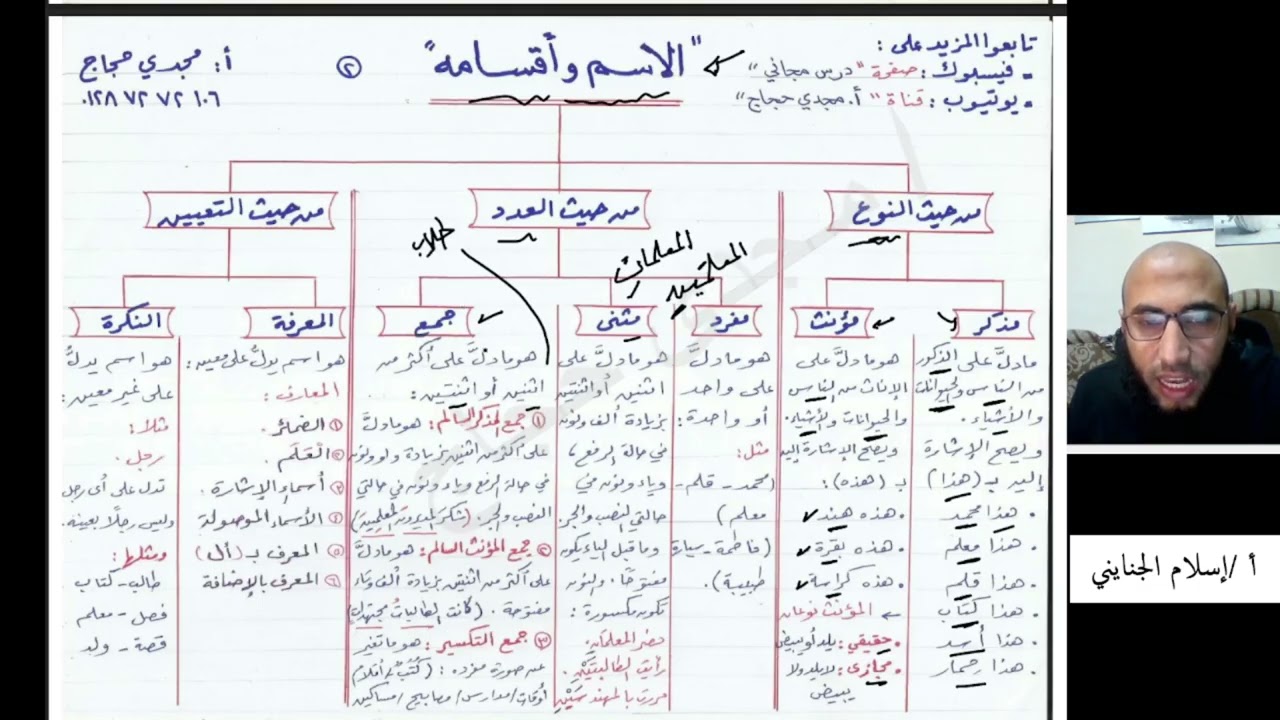 تابعوا المزيد على:
- فيسبوك: صفحة "درس مجاني"
- يوتيوب: قناة "أ. مجدي حجاج"
"الاسم وأقسامه"
٢
أ: مجدي حجاج
٠١٢٨٧٢٧٢١٠٦
من حيث النوع
من حيث العدد
من حيث التعيين
طلاب
المعلمات
المعلمين
مذكر
مؤنث
مفرد
مثنى
جمع
المعرفة
النكرة
ما دلَّ على الذكور
من الناس والحيوانات
والأشياء.
ويصح الإشارة
إليه بـ (هذا)
• هذا محمد
• هذا معلم
• هذا قلم
• هذا كتاب
• هذا أسد
• هذا حمار
هو ما دلَّ على
الإناث من الناس
والحيوانات والأشياء.
ويصح الإشارة إليه
بـ (هذه):
• هذه هند
• هذه بقرة
• هذه كراسة
← المؤنث نوعان
• حقيقي: يلد أو يبيض
• مجازى: لا يلد ولا
يبيض
هو ما دلَّ
على واحد
أو واحدة:
مثل:
(محمد - قلم -
معلم)
(فاطمة - سيارة
طبيبة).
هو ما دلَّ على
اثنين أو اثنتين
بزيادة ألف ونون
في حالة الرفع،
وياء ونون في
حالتي النصب والجر.
وما قبل الياء يكون
مفتوحًا، والنون
تكون مكسورة:
حضر المعلمانِ.
رأيت الطالبتَيْنِ.
مررت بالمهندسَيْنِ
هو ما دلَّ على أكثر من
اثنين أو اثنتين:
١ جمع المذكر السالم: هو ما دلَّ
على أكثر من اثنين بزيادة واو ونون
في حالة الرفع وياء ونون في حالتي
النصب والجر. (شكر المديرون المعلمين)
٢ جمع المؤنث السالم: هو ما دلَّ
على أكثر من اثنتين بزيادة ألف وتاء
مفتوحة. (كانت الطالبات مجتهدات)
٣ جمع التكسير: هو ما تغير
عن صورة مفرده: (كتب / أقلام
أوقات / مدارس / مصابيح / مساكين
هو اسم يدلُّ على معين:
المعارف:
١ الضمائر.
٢ العَلَم.
٣ أسماء الإشارة.
٤ الأسماء الموصولة
٥ المعرف بـ (أل)
٦ المعرف بالإضافة
هو اسم يدلُّ
على غير معين:
مثلا:
رجل.
تدل على أى رجل
وليس رجلًا بعينه.
ومثلها:
طالب - كتاب
فصل - معلم
قصة - ولد
أ /إسلام الجنايني